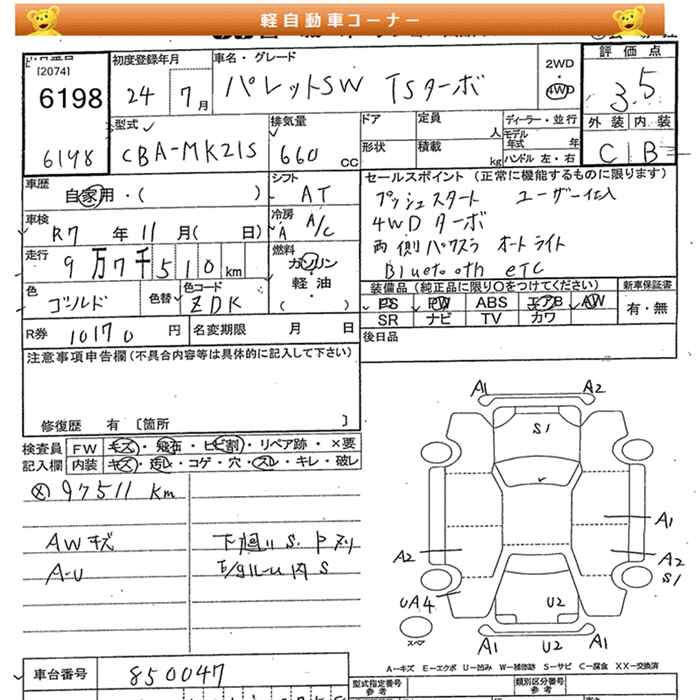 軽自動車コーナー
[2074]
6198
6198
初度登録年月
24 7月
車名・グレード
パレットSW TSターボ
2WD
・
4WD
評価点
3.5
外装 内装
C B
型式
CBA-MK21S
排気量
660 cc
ドア
定員
人
形状
積載
kg
ディーラー・並行
モデル年式 年
ハンドル 左・右
車歴
自家用・( )
シフト
AT
車検
R7年11月( 日)
冷房
A A/C
走行
9万7千510km
燃料
ガソリン
・
軽油
( )
色
ゴールド
色替
色コード
ZDK
R券
10170円
名変期限 月 日
セールスポイント(正常に機能するものに限ります)
プッシュスタート ユーザー仕入
4WD ターボ
両側パワスラ オートライト
Bluetooth ETC
装備品(純正品に限り〇をつけてください)
PS PW ABS エアB AW
SR ナビ TV カワ
新車保証書
有・無
後日品
注意事項申告欄(不具合内容等は具体的に記入して下さい)
修復歴 有 [箇所 ]
検査員記入欄
FW キズ・飛石・ヒビ割・リペア跡・×要
内装 キズ・汚れ・コゲ・穴・スレ・キレ・破レ
97511km
AWキズ
A-U
下廻りS.
S
A1 A2
S1
A1
A2
A2
S1
UA4
スペア
U2
A1 U2 A1
A-キズ E-エクボ U-凹み W-補修跡 S-サビ C-腐食 XX-交換済
車台番号
850047
型式指定番号
参考
類別区分番号
参考